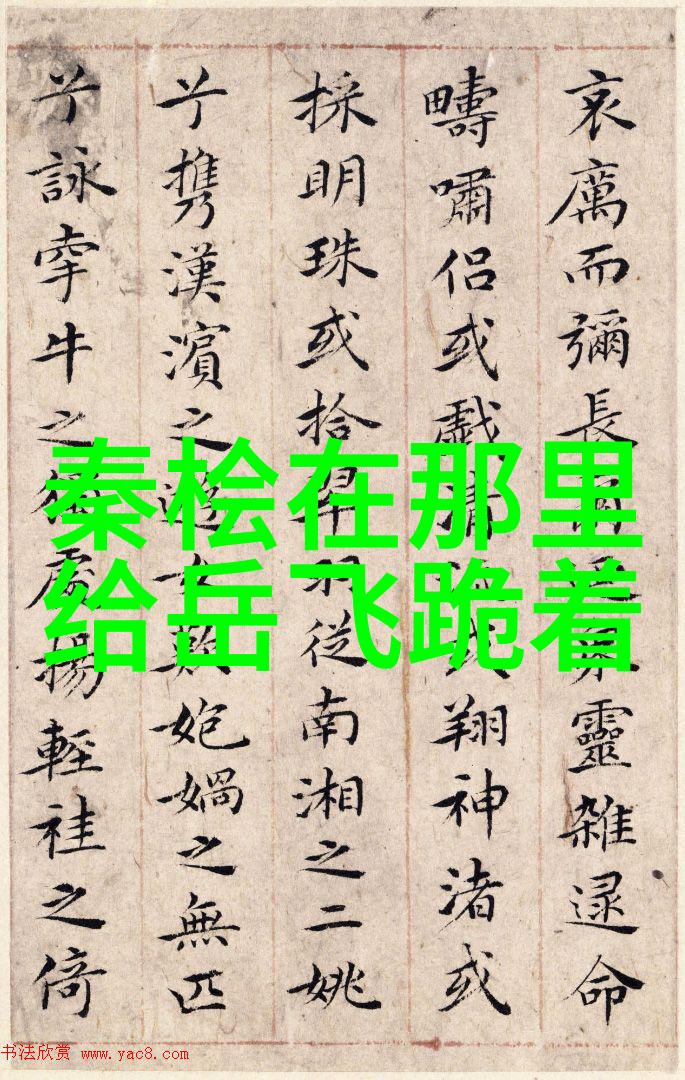 哀厲而彌長靈雜遝命
疇嘯侣或戲清或翔神渚或
採明珠或拾翠羽從南湘之二姚
兮携漢濱之遊女歎媧之無匹
兮詠牽牛之獨處揚輕袿之倚
秦桧在那里
给岳飞跪着
书法欣赏 www.yac8.com